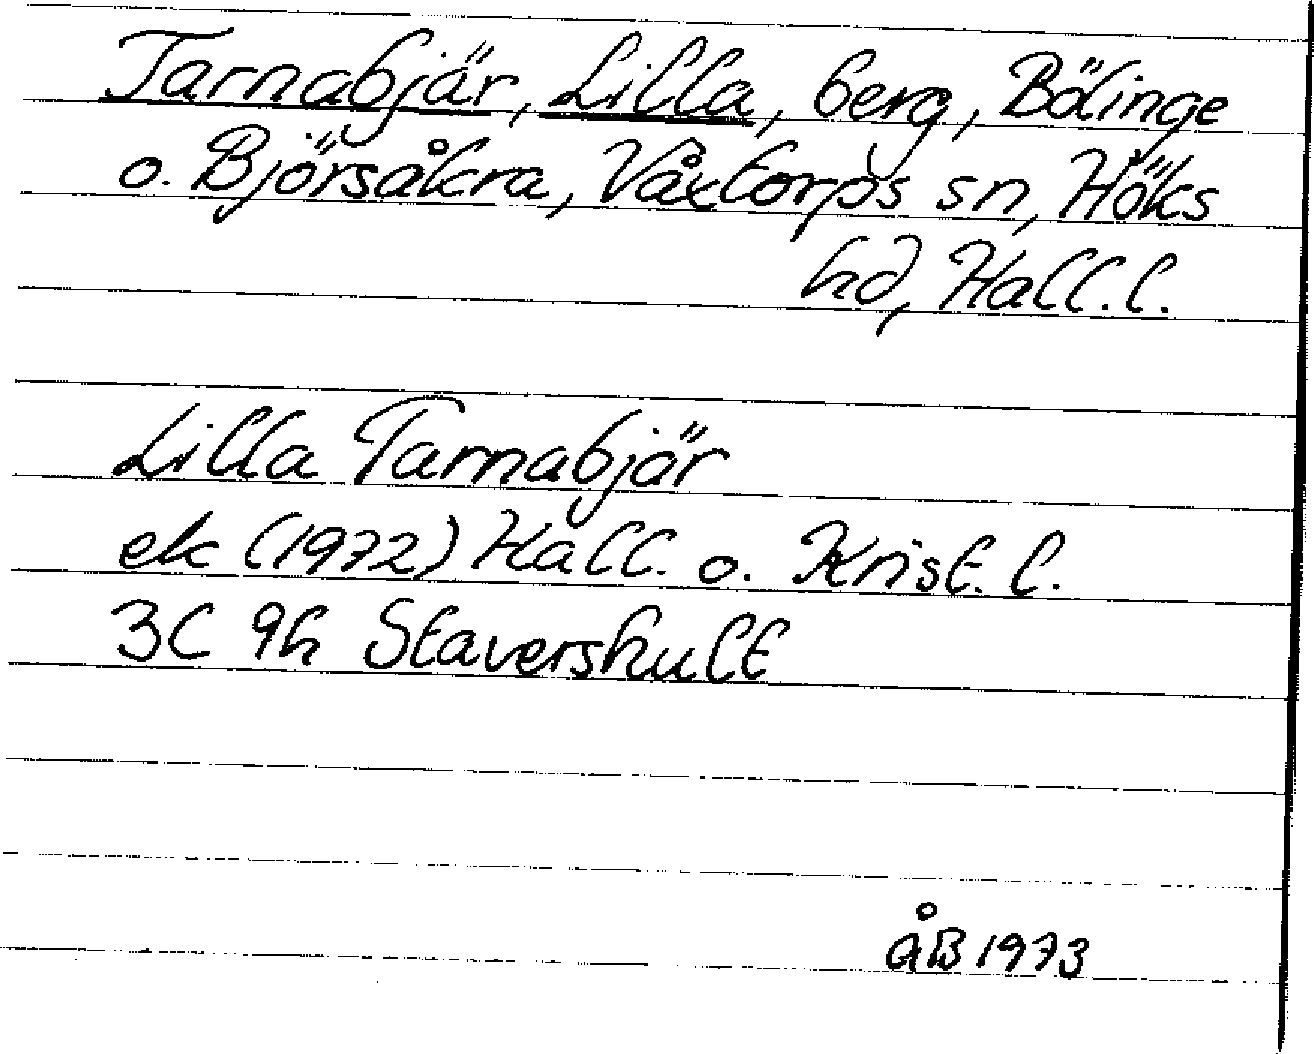 Tarnabjär, Lilla, berg, Bölinge
o. Björsåkra, Våxtorps sn, Höks
hd, Hall. l.
Lilla Tarnabjär
ek (1972) Hall. o. Krist. l.
3C 9h Stavershult
åB 1973